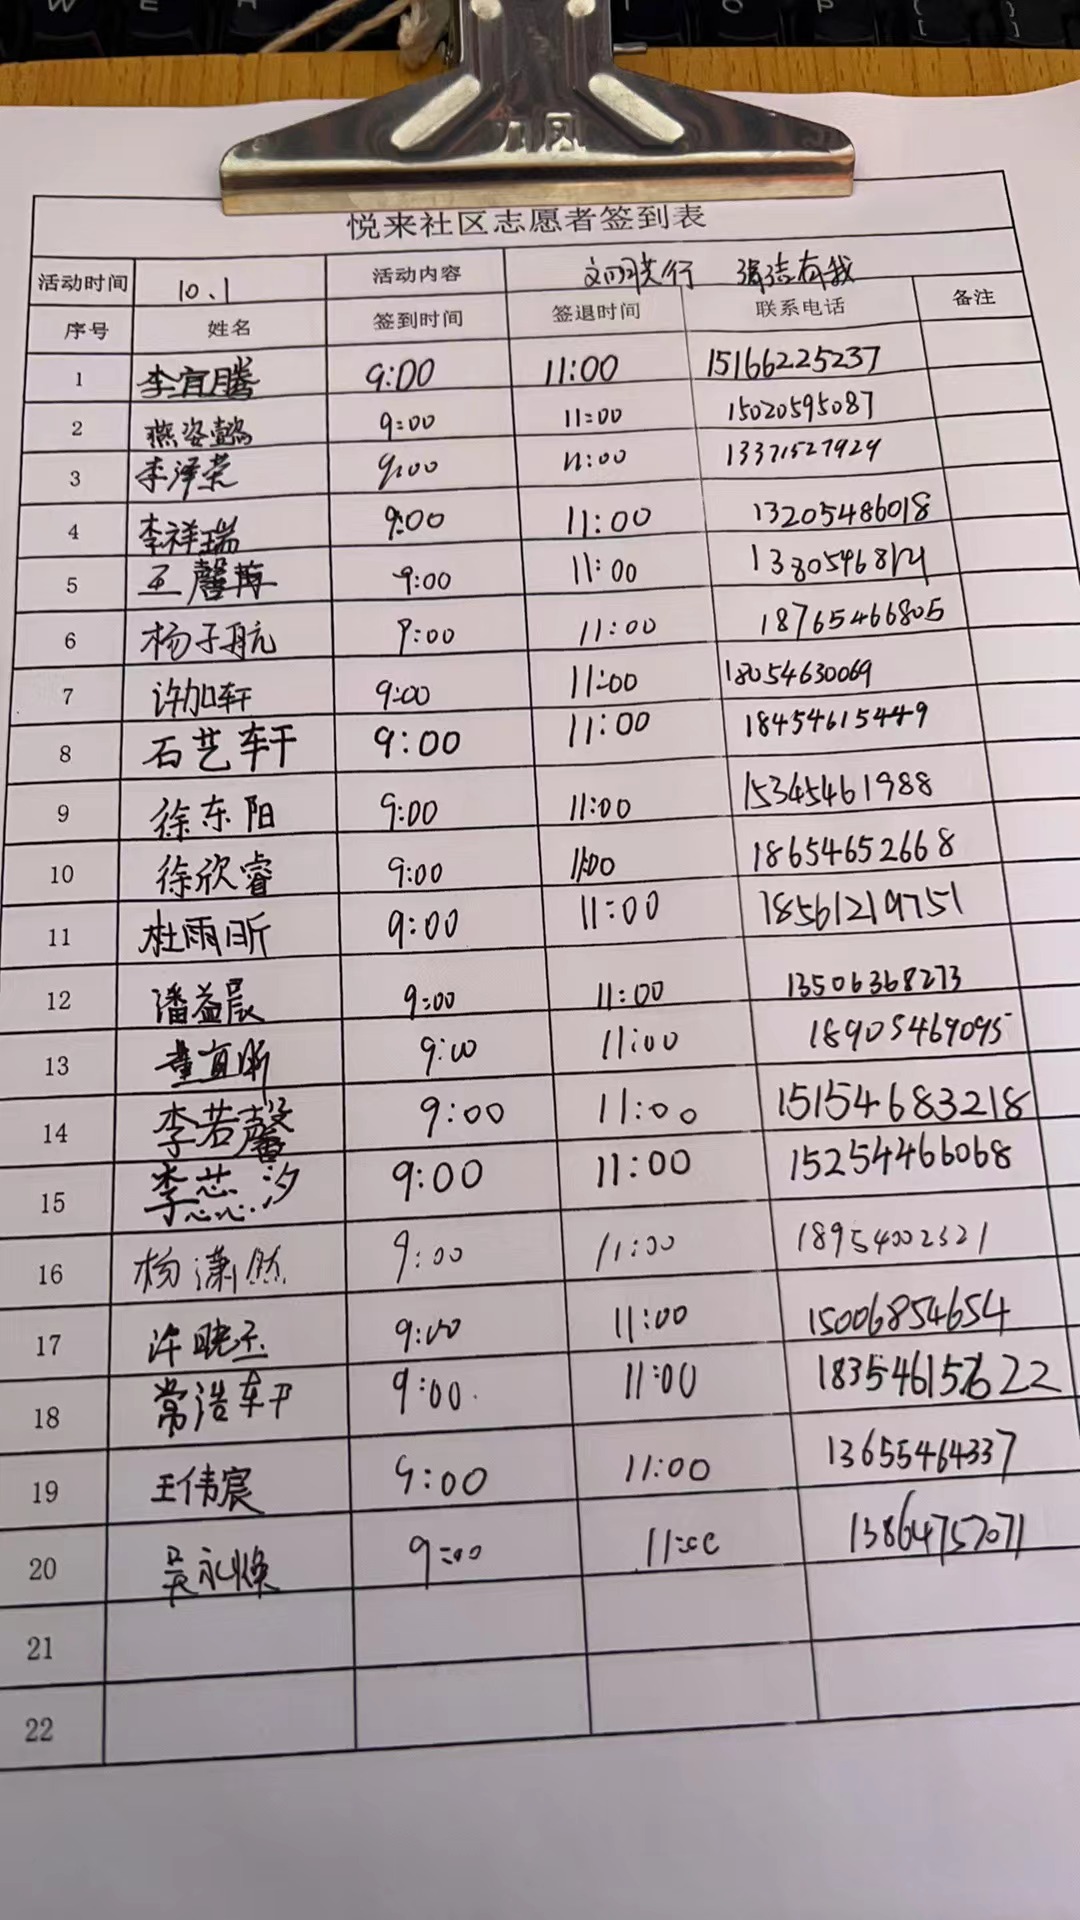 悦来社区志愿者签到表
活动时间 10.1 活动内容 文明先行 清洁有我
序号 姓名 签到时间 签退时间 联系电话 备注
1 李宜腾 9:00 11:00 15166225237
2 燕姿懿 9:00 11:00 15020595087
3 李泽荣 9:00 11:00 13371527929
4 李祥瑞 9:00 11:00 13205486018
5 王馨苒 9:00 11:00
6 杨子航 9:00 11:00 18765466805
7 许加轩 9:00 11:00 18054630069
8 石艺轩 9:00 11:00 18454615449
9 徐东阳 9:00 11:00 15345461988
10 徐欣睿 9:00 11:00 18654652668
11 杜雨昕 9:00 11:00 18561219751
12 潘益晨 9:00 11:00 13506368273
13 9:00 11:00 18905469095
14 李若馨 9:00 11:00 15154683218
15 李芯汐 9:00 11:00 15254466068
16 杨潇然 9:00 11:00 18954002321
17 许晓玉 9:00 11:00 15006854654
18 常浩轩 9:00 11:00
19 王伟宸 9:00 11:00 13655464337
20 吴永焕 9:00 11:00 13864757071
21
22